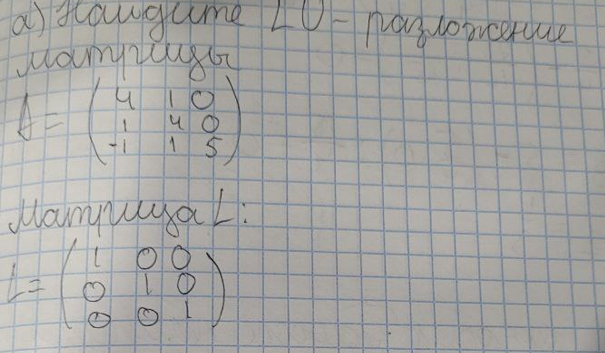 а) Найдите LU - разложение
матрицы
A = ( 4 1 0
1 4 0
-1 1 5 )
Матрица L:
L = ( 1 0 0
0 1 0
0 0 1 )